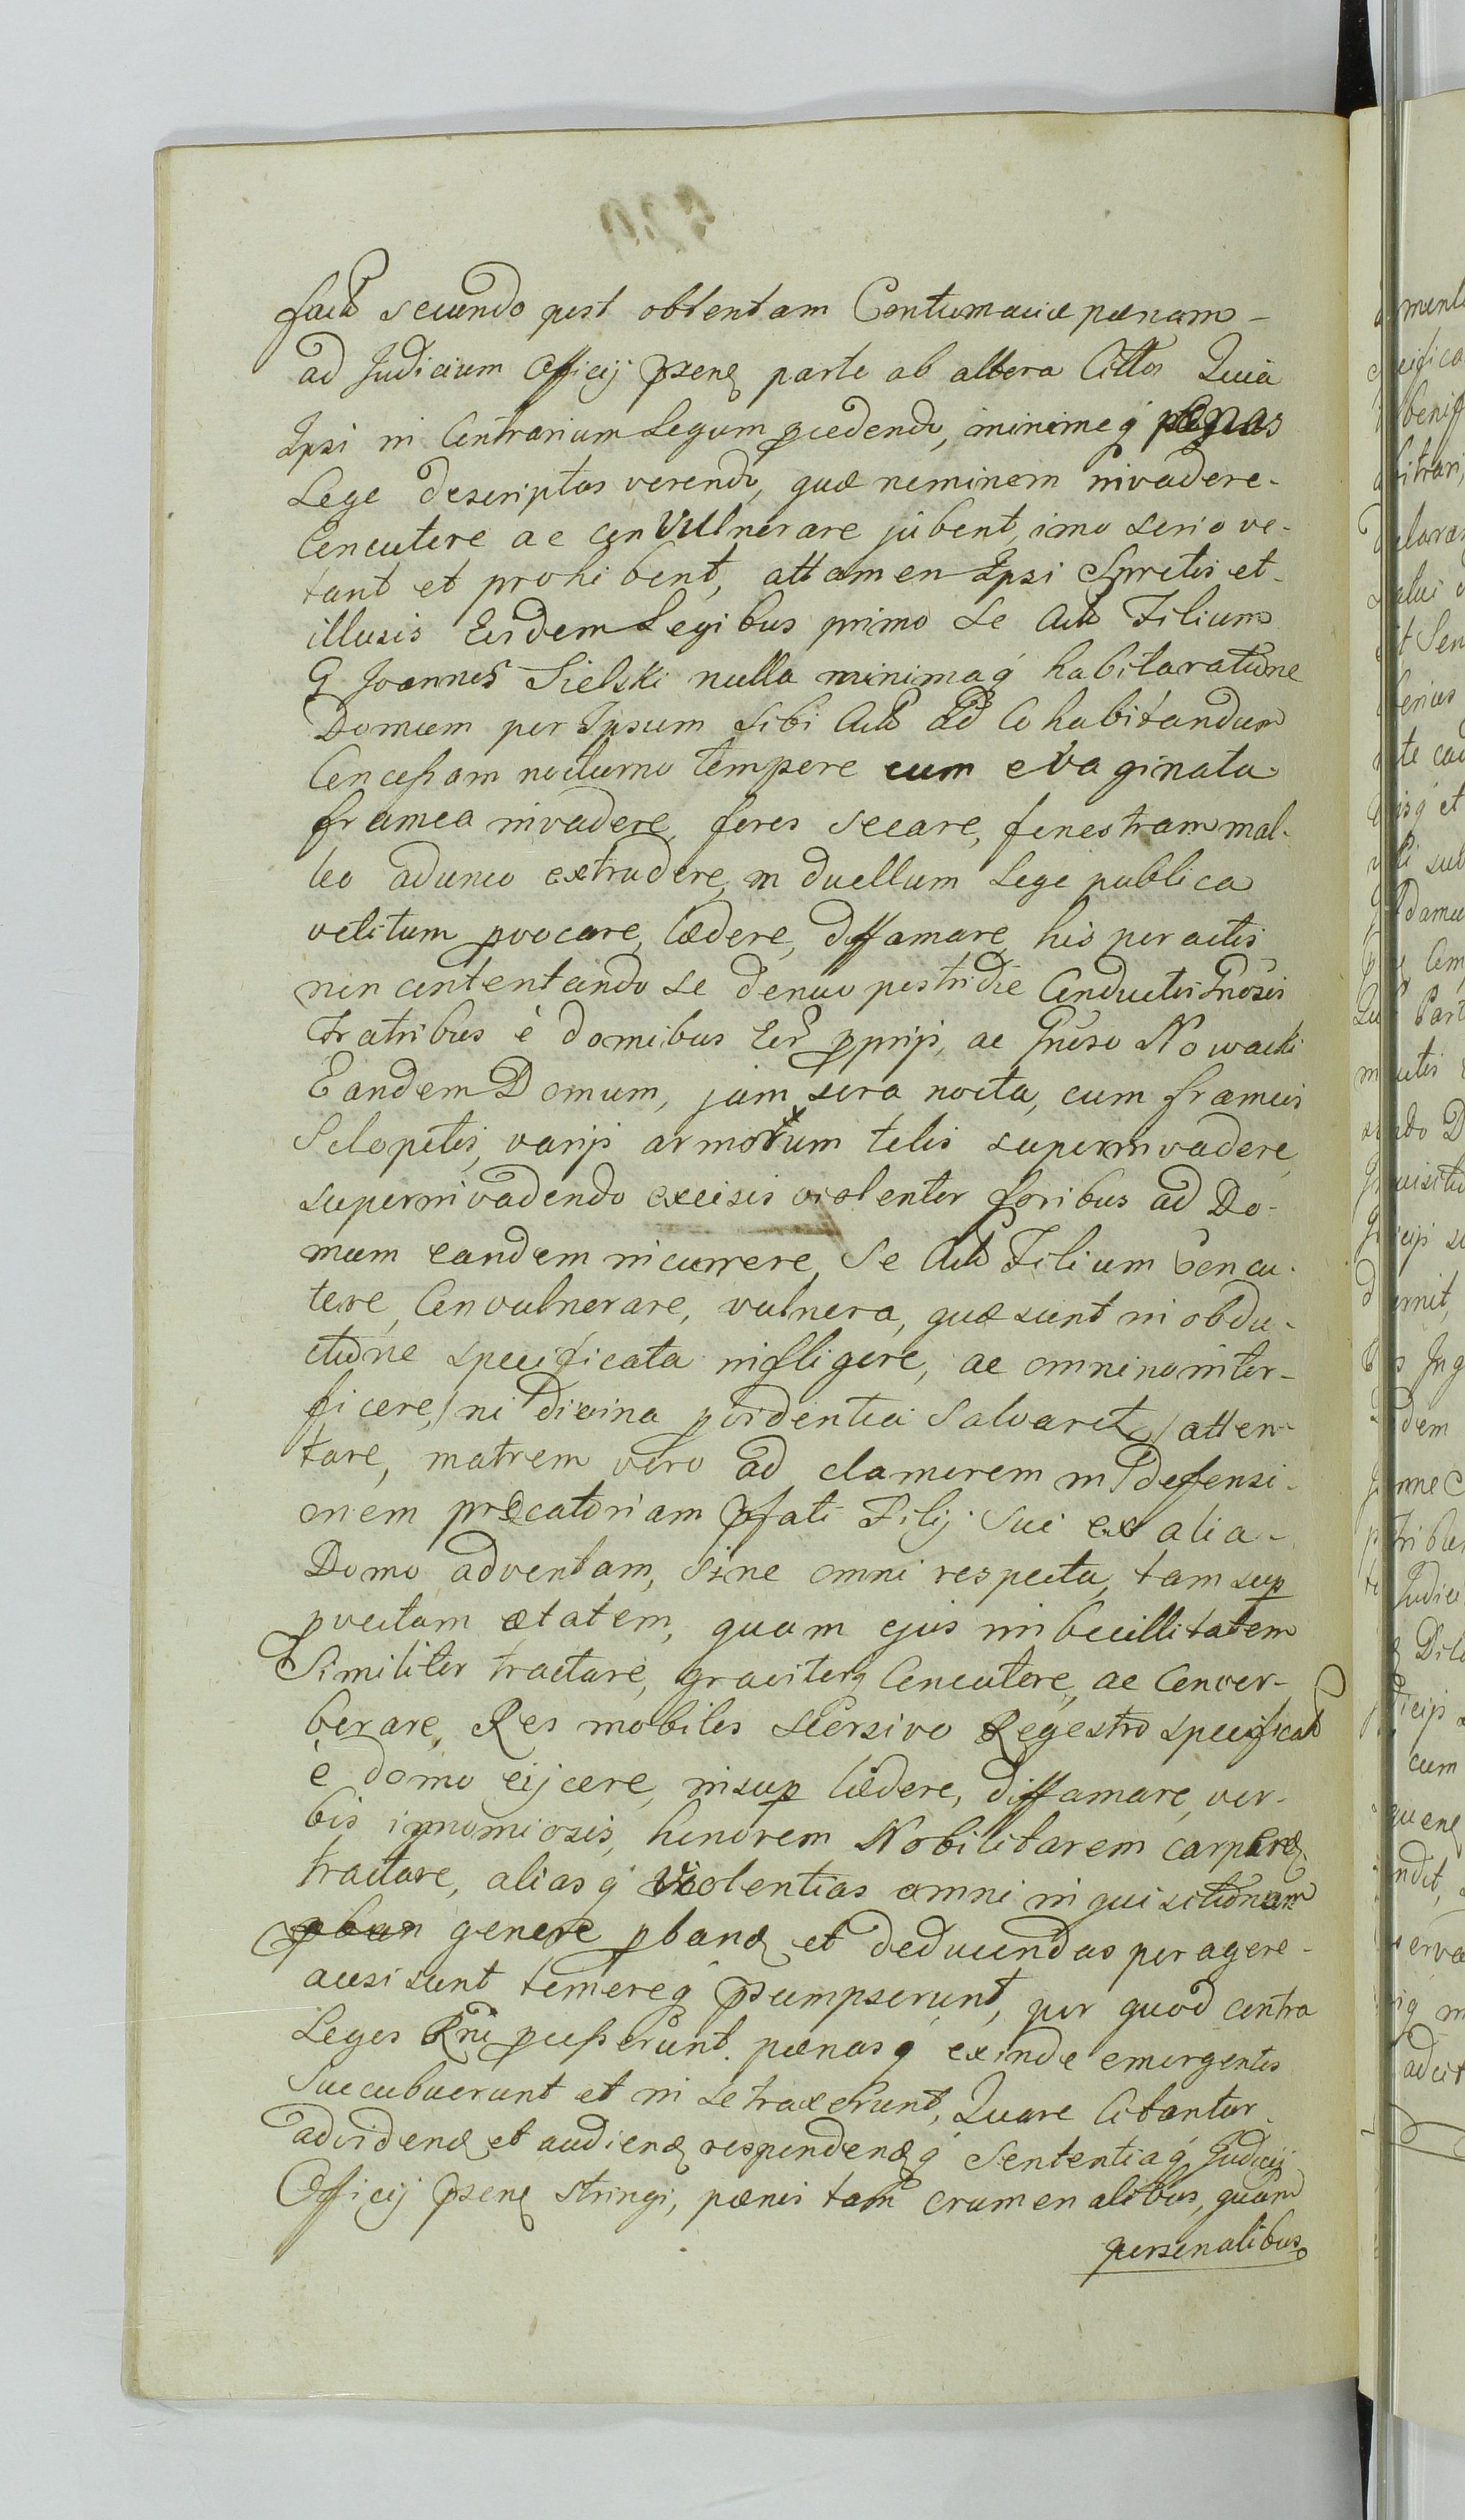 facto secundo post obtentam Contumaciæ pœnam
ad Judicium Officij Psene parte ab altera Cittos Quia
Ipsi in Contrarium Legum pcedendo, minimeq pœnas
Lege descriptas verendo, quæ neminem invadere
Concutere ac con Vulnerare jubent, imo serio ve-
tant et prohibent, attamen Ipsi Spretis et
illusis Eisdem Legibus primo Se Acto Filium
G Joannes Sielski nulla minimaq habita ratione
Domum per Ipsum Sibi Acto ad Cohabitandum
Concessam nocturno tempore cum evaginata
framea invadere, fores secare, fenestram mal-
leo adunco extrudere, in duellum Lege publica
vetitum pvocare, lædere, diffamare, his peractis
non contentando se denuo postridie Conductis Gnosis
Fratribus è domibus Eor pprijs, ac Gnoso Nowacki
Eandem Domum, jam sera nocta, cum frameis
Sclopetis, varijs armorum telis superinvadere,
superinvadendo excisis violenter foribus ad Do-
mum eandem incurrere, Se Acto Filium Concu-
tere, Convulnerare, vulnera, quæ sunt in obdu-
ctione specificata infligere, ac omnino inter-
ficere, /ni divina pvidentia Salvaret/ atten-
tare, matrem vero ad clamorem in defensi-
onem precatoriam Pfati Filij Sui ex alia
Domo adventam, Sine omni respectu, tam sup
pvectam ætatem, quam ejus imbecillitatem
Similiter tractare, graviterq Concutere, ac Conver-
berare, Res mobiles seorsivo Regestro specificat
è domo eijcere, insup lædere, diffamare, ver-
bis ignomiosis, honorem Nobilitarem carpere
tractare, aliasq Violentias omni inquisitionum
pban genere pband et deducendas peragere
ausi sunt temereq Psumpserunt, per quod contra
Leges Rni pcesserunt pœnasq exinde emergentes
Succubuerunt et in se traxerunt, Quare Citantur
ad vidend et audiend respondendq Sententiaq Judicij
Officij Psene Stringi, pœnis tam crumenalibus, quam
personalibus